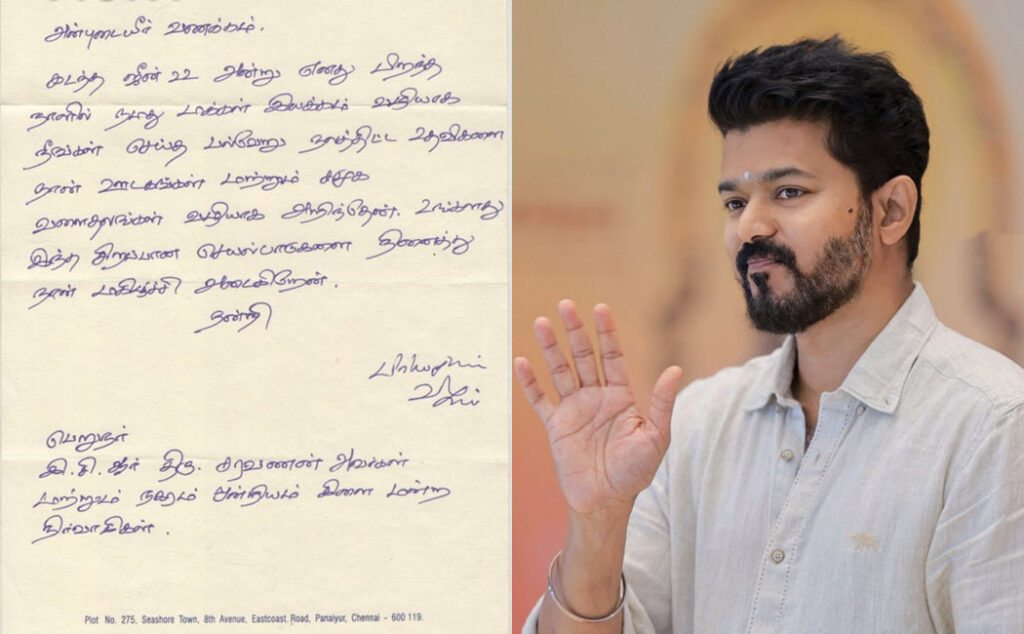 அன்புடையீர் வணக்கம்.
கடந்த ஜீன் 22 அன்று எனது பிறந்த
நாளில் நமது மக்கள் இயக்கம் வழியாக
நீங்கள் செய்த பல்வேறு நலத்திட்ட உதவிகளை
நான் ஊடகங்கள் மற்றும் சமூக
வளைதலங்கள் வழியாக அறிந்தேன். உங்களது
இந்த சிறப்பான செயல்பாடுகளை நினைத்து
நான் மகிழ்ச்சி அடைகிறேன்.
நன்றி
பிரியமுடன்
விஜய்
பெறுநர்
இ.சி.ஆர் திரு. சரவணன் அவர்கள்
மற்றும் நகரம் ஒன்றியம் கிளை மன்ற
நிர்வாகிகள்.
Plot No. 275, Seashore Town, 8th Avenue, Eastcoast Road, Panaiyur, Chennai - 600 119.